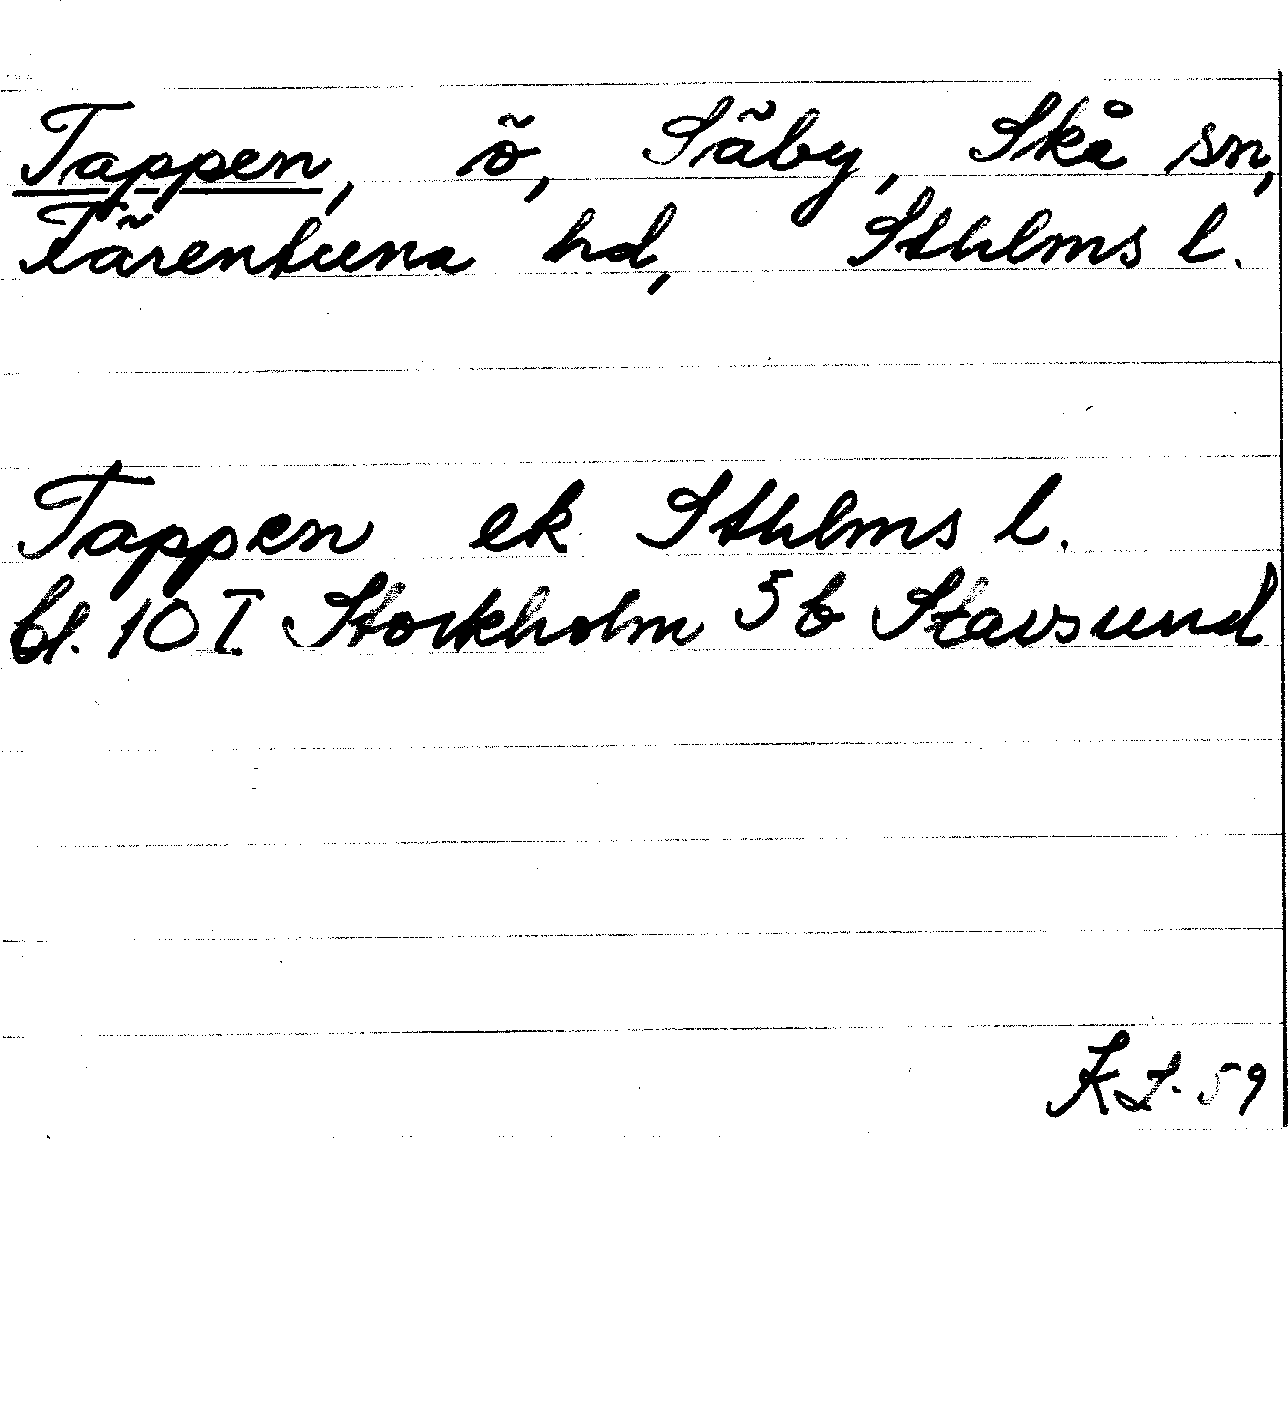 Tappen, ö, Säby, Skå sn,
Färentuna hd, Sthlms l.
Tappen ek Sthlms l.
bl. 10 I. Stockholm 5 b Stavsund
K L. 59